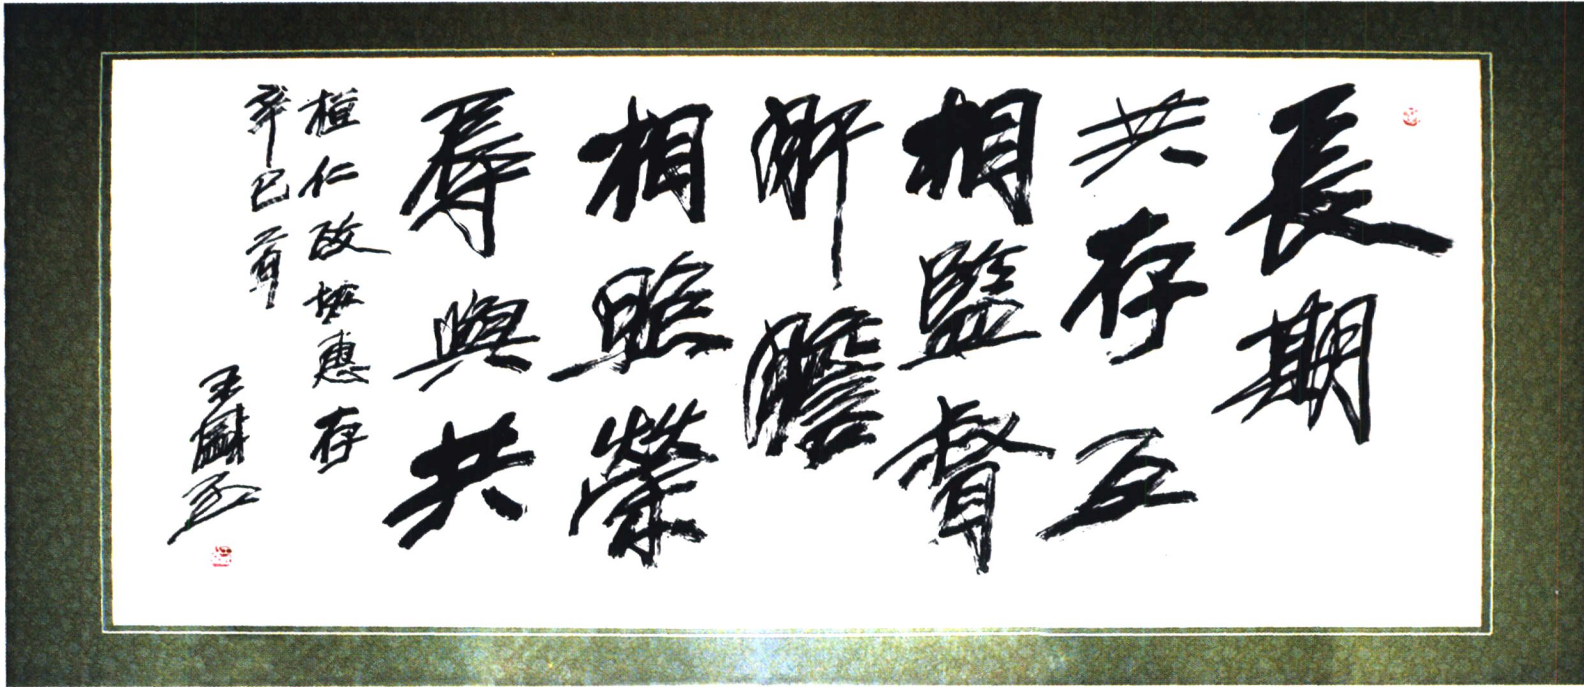 長期
共存互
相監督
肝膽
相照榮
辱與共
桓仁政協惠存
辛巳
王